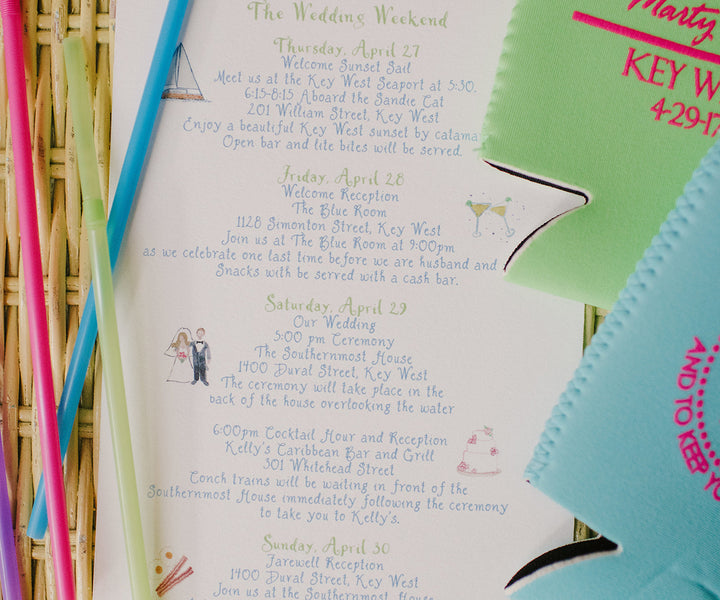 The Wedding Weekend
Thursday, April 27
Welcome Sunset Sail
Meet us at the Key West Seaport at 5:30.
6:15-8:15 Aboard the Sandie Cat
201 William Street, Key West
Enjoy a beautiful Key West sunset by catama
Open bar and lite bites will be served.
Friday, April 28
Welcome Reception
The Blue Room
1128 Simonton Street, Key West
Join us at The Blue Room at 9:00pm
as we celebrate one last time before we are husband and
Snacks with be served with a cash bar.
Saturday, April 29
Our Wedding
5:00 pm Ceremony
The Southernmost House
1400 Duval Street, Key West
The ceremony will take place in the
back of the house overlooking the water
6:00pm Cocktail Hour and Reception
Kelly's Caribbean Bar and Grill
301 Whitehead Street
Conch trains will be waiting in front of the
Southernmost House immediately following the ceremony
to take you to Kelly's.
Sunday, April 30
Farewell Reception
1400 Duval Street, Key West
Join us at the Southernmost House
Marty
KEY W
4-29-17
AND TO KEEP YO